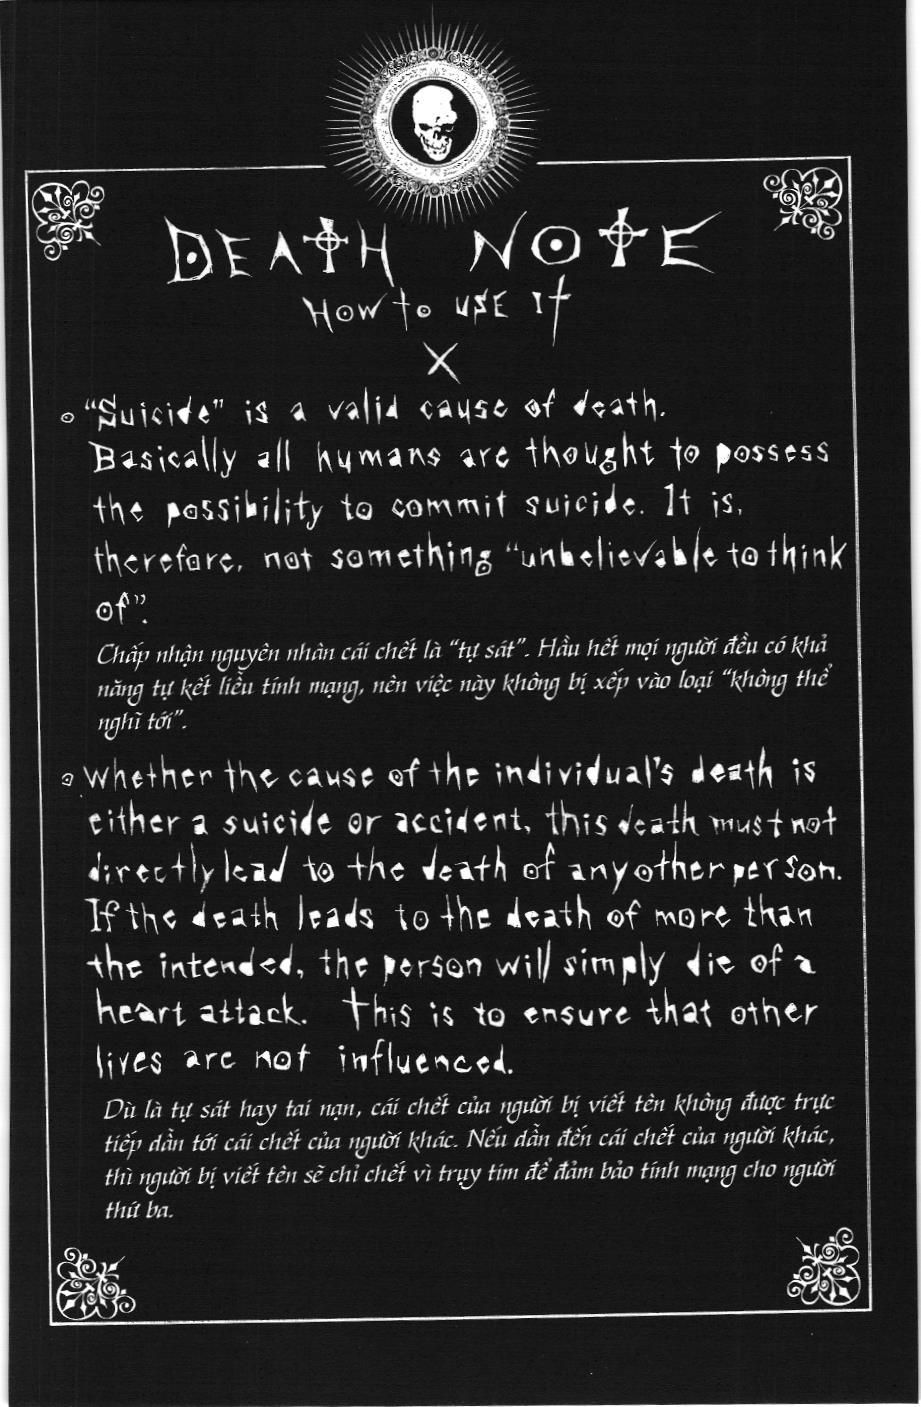 DEATH NOTE
How to use it
X
“Suicide” is a valid cause of death.
Basically all humans are thought to possess
the possibility to commit suicide. It is,
therefore, not something “unbelievable to think
of”.
Chấp nhận nguyên nhân cái chết là “tự sát”. Hầu hết mọi người đều có khả
năng tự kết liễu tính mạng, nên việc này không bị xếp vào loại “không thể
nghĩ tới”.
Whether the cause of the individual's death is
either a suicide or accident, this death must not
directly lead to the death of any other person.
If the death leads to the death of more than
the intended, the person will simply die of a
heart attack. This is to ensure that other
lives are not influenced.
Dù là tự sát hay tai nạn, cái chết của người bị viết tên không được trực
tiếp dẫn tới cái chết của người khác. Nếu dẫn đến cái chết của người khác,
thì người bị viết tên sẽ chỉ chết vì trụy tim để đảm bảo tính mạng cho người
thứ ba.